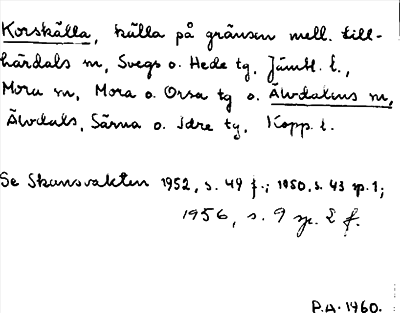 Korskälla, källa på gränsen mell. Lill-
härdals sn, Svegs o. Hede tg, Jämtl. l.,
Mora sn, Mora o. Orsa tg o. Älvdalens sn,
Älvdals, Särna o. Idre tg, Kopp. l.
Se Skansvakten 1952, s. 49 f.; 1950, s. 43 sp. 1;
1956, s. 9 sp. 2 f.
P.A. 1960.